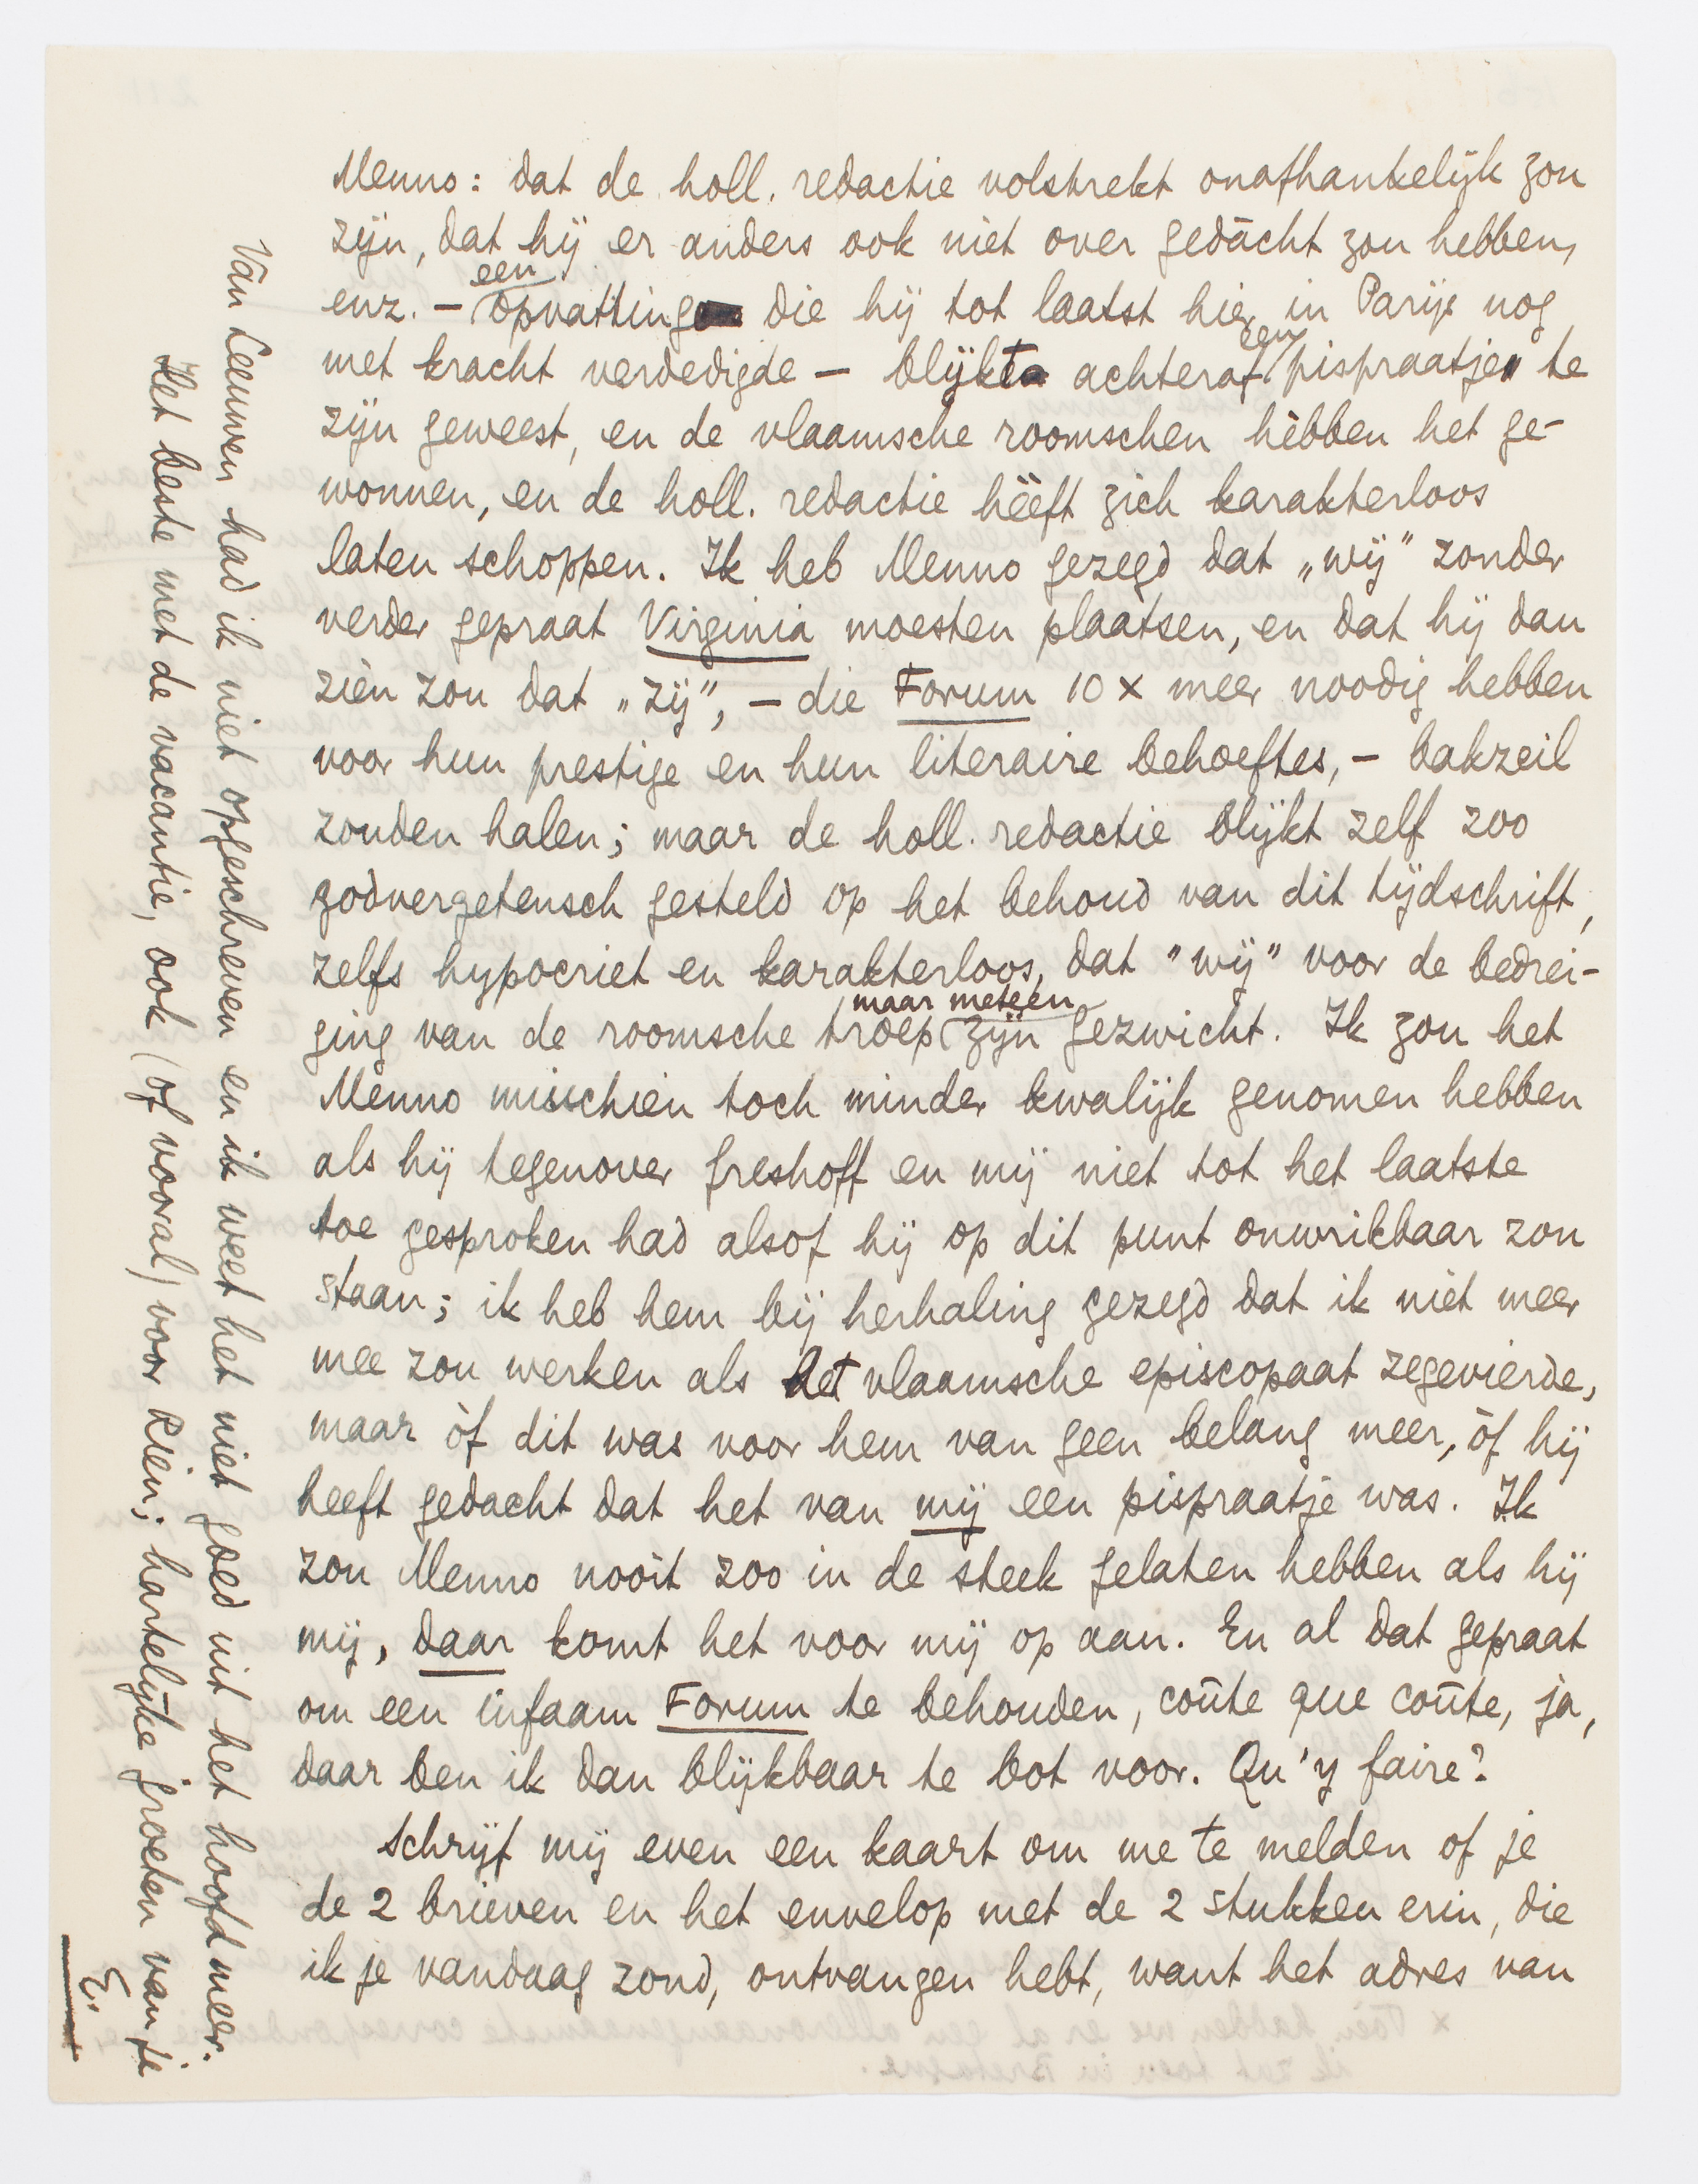 Menno: dat de holl. redactie volstrekt onafhankelijk zou
zijn, dat hij er anders ook niet over gedácht zou hebben,
enz. – een opvatting die hij tot laatst hier in Parijs nog
met kracht verdedigde – blijkt achteraf een pispraatje te
zijn geweest, en de vlaamsche roomschen hèbben het ge-
wonnen, en de holl. redactie hééft zich karakterloos
laten schoppen. Ik heb Menno gezegd dat „wij" zonder
verder gepraat Virginia moesten plaatsen, en dat hij dan
zièn zou dat „zij", – die Forum 10 x meer noodig hebben
voor hun prestige en hun literaire behoeftes, – bakzeil
zouden halen; maar de holl. redactie blijkt zelf zoo
godvergetensch gesteld op het behoud van dit tijdschrift,
zelfs hypocriet en karakterloos, dat "wij" voor de bedrei-
ging van de roomsche troep maar meteen zijn gezwicht. Ik zou het
Menno misschien toch minder kwalijk genomen hebben
als hij tegenover Greshoff en mij niet tot het laatste
toe gesproken had alsof hij op dit punt onwrikbaar zou
staan; ik heb hem bij herhaling gezegd dat ik niet meer
mee zou werken als het vlaamsche episcopaat zegevierde,
maar òf dit was voor hem van geen belang meer, òf hij
heeft gedacht dat het van mij een pispraatje was. Ik
zou Menno nooit zoo in de steek gelaten hebben als hij
mij, daar komt het voor mij op aan. En al dat gepraat
om een infaam Forum te behouden, coûte que coûte, ja,
daar ben ik dan blijkbaar te bot voor. Qu'y faire?
Schrijf mij even een kaart om me te melden of je
de 2 brieven en het envelop met de 2 stukken erin, die
ik je vandaag zond, ontvangen hebt, want het adres van
Van Leeuwen had ik niet opgeschreven en ik weet het niet goed uit het hoofd meer.
Het beste met de vacantie, ook (of vooral) voor Rien; hartelijke groeten van je
E.